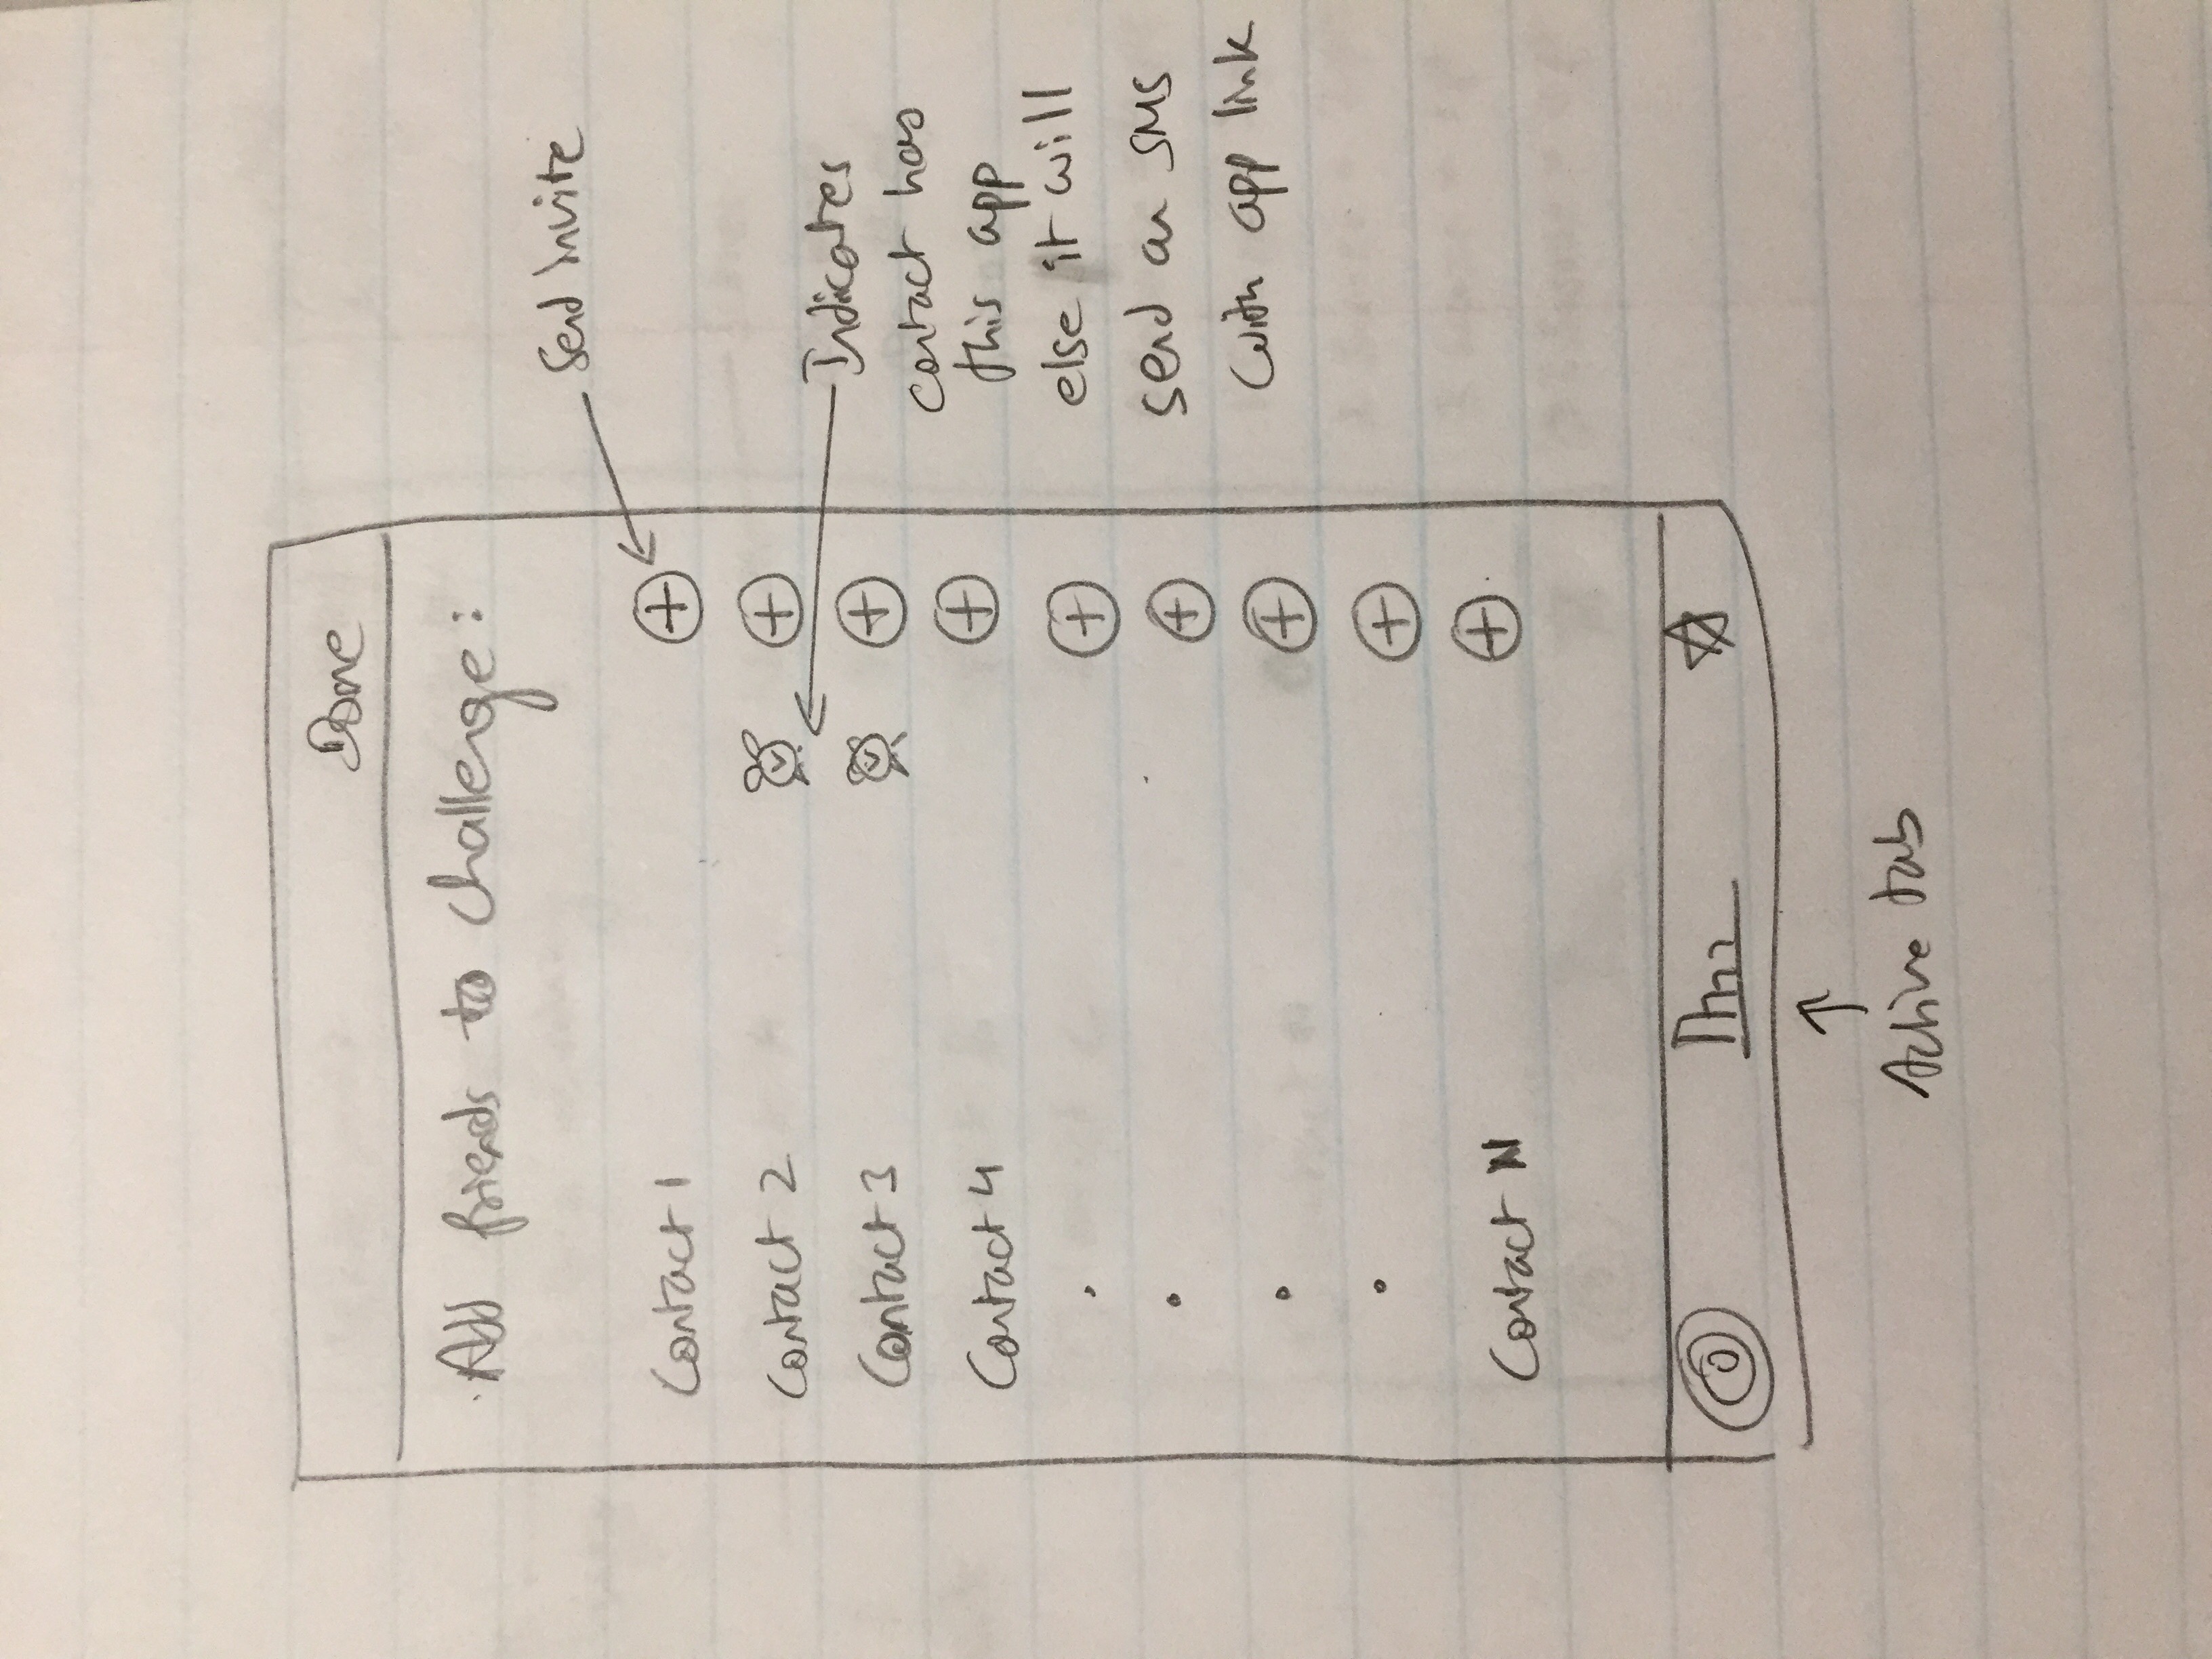 Done
Add friends to challenge:
Send invite
Contact 1
Contact 2
Indicates
Contact 3
contact has
Contact 4
this app
else it will
send an SMS
with app link
Contact N
Active tab